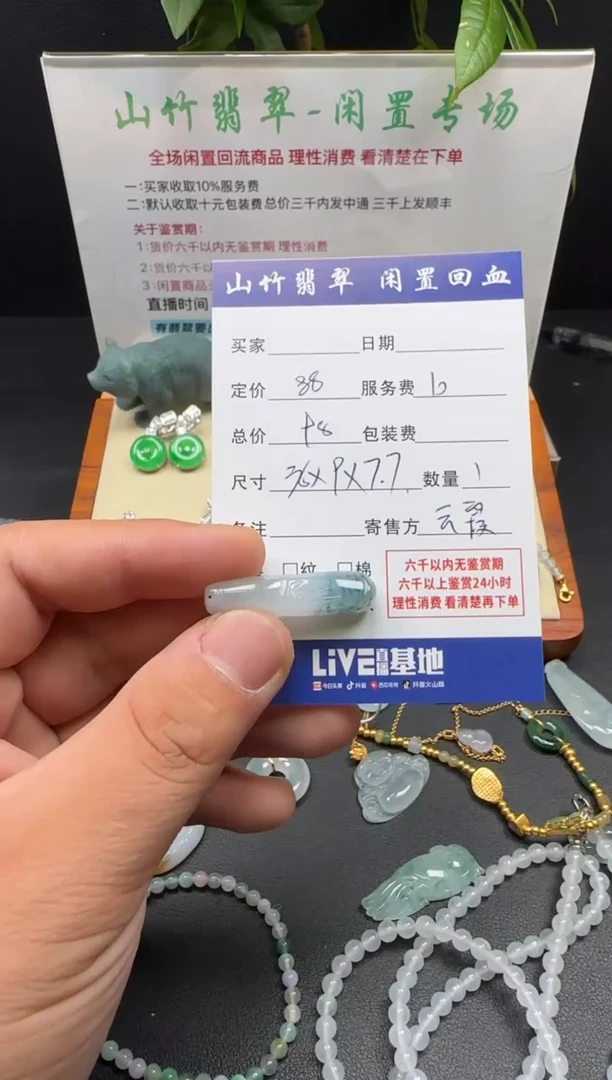 山竹翡翠-闲置专场
全场闲置回流商品 理性消费 看清楚在下单
一:买家收取10%服务费
二:默认收取十元包装费 总价三千内发中通 三千上发顺丰
关于鉴赏期:
1:货价六千以内无鉴赏期 理性消费
2:货价六千以
3:闲置商品
直播时间
有翡翠要出
山竹翡翠 闲置回血
买家 日期
定价 38 服务费 10
总价 48 包装费
尺寸 36×9×7.7 数量 1
备注 寄售方 云霞
□纹 □棉
六千以内无鉴赏期
六千以上鉴赏24小时
理性消费 看清楚再下单
LiVE直播基地
今日头条 抖音 西瓜视频 抖音火山版